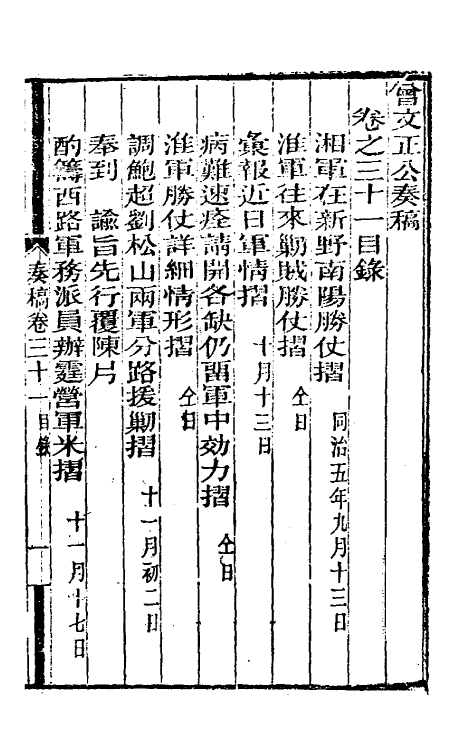 曾文正公奏稿
卷之三十一目錄
湘軍在新野南陽勝仗摺 同治五年九月十三日
淮軍往來勦賊勝仗摺 仝日
彙報近日軍情摺 十月十三日
病難速痊請開各缺仍畱軍中効力摺 仝日
淮軍勝仗詳細情形摺 仝日
調鮑超劉松山兩軍分路援勦摺 十一月初二日
奉到 諭旨先行覆陳片
酌籌西路軍務派員辦霆營軍米摺 十一月十七日
奏稿卷三十一目錄 一